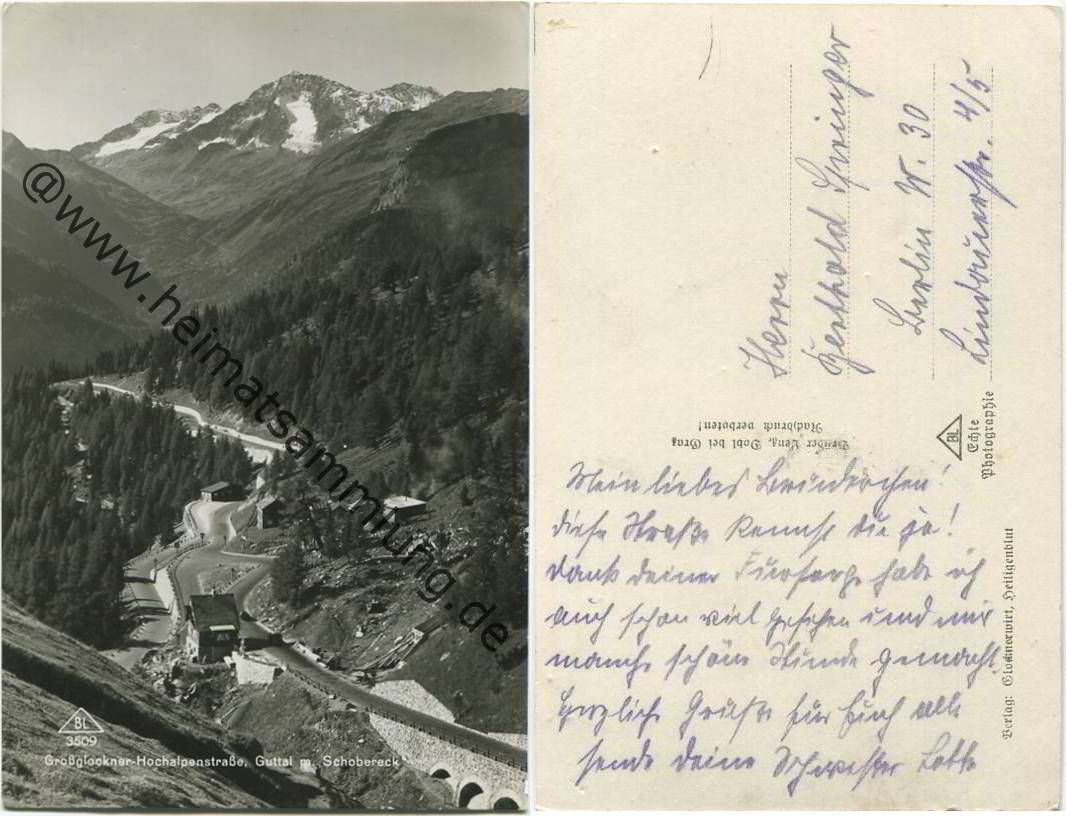 @www.heimatsammlung.de
BL
3509
Großglockner-Hochalpenstraße, Guttal m. Schobereck
Herrn
Berthold Springer
Berlin W. 30
Lindauerstr. 4/5
BL
Echte
Photographie
Brüder Lenz, Dobl bei Graz
Nachdruck verboten!
Verlag: Glocknerwirt, Heiligenblut
Mein liebes Brüderchen!
diese Straße kennst du ja!
dank deiner Fürsorge habe ich
auch schon viel gesehen und mir
manche schöne Stunde gemacht.
Herzliche Grüße für Euch alle
sende deine Schwester Lotte